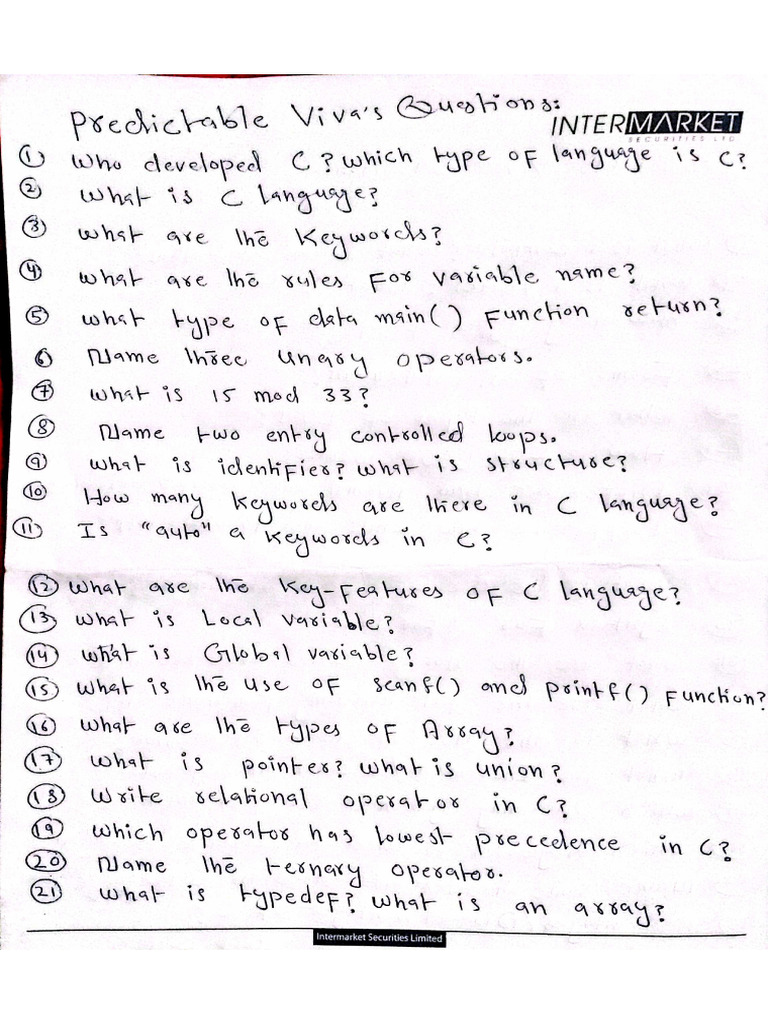 Predictable Viva's Questions:
INTERMARKET
SECURITIES LTD
① Who developed C? which type of language is C?
② What is C language?
③ What are the keywords?
④ What are the rules for variable name?
⑤ What type of data main() function return?
⑥ Name three unary operators.
⑦ What is 15 mod 33?
⑧ Name two entry controlled loops.
⑨ What is identifier? what is structure?
⑩ How many keywords are there in C language?
⑪ Is "auto" a keywords in C?
⑫ What are the key-features of C language?
⑬ What is Local variable?
⑭ What is Global variable?
⑮ What is the use of scanf() and printf() function?
⑯ What are the types of Array?
⑰ What is pointer? what is union?
⑱ Write relational operator in C?
⑲ Which operator has lowest precedence in C?
⑳ Name the ternary operator.
㉑ What is typedef? what is an array?
Intermarket Securities Limited